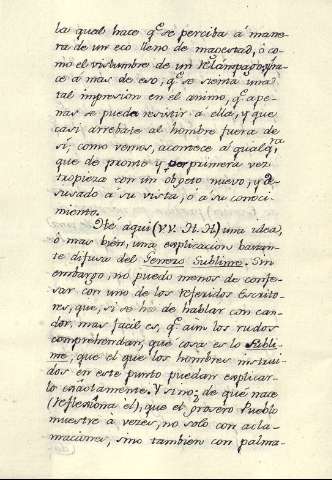 la qual hace q.e se perciba á mane-
ra de un eco lleno de magestad, ó co-
mo el vislumbre de un relámpago; y ha-
ce á mas de eso, q.e se sienta una
tal impresion en el animo, q.e ape-
nas se puede resistir á ella, y que
casi arrebate al hombre fuera de
sí; como vemos, acontece á qualq.ra
que de pronto y por primera vez
tropieza con un objeto nuevo, y de-
susado á su vista, ó á su conoci-
miento.
Hé aqui (VV. H. H.) una idea,
ó mas bien, una explicacion bastan-
te difusa del Genero Sublime. Sin
embargo, no puedo menos de confe-
sar con uno de los referidos Escrito-
res, que, si se há de hablar con can-
dor, mas facil es, q.e aún los rudos
comprehendan, qué cosa es lo Subli-
me, que el que los hombres instrui-
dos en este punto puedan explicar-
lo exactamente. Y sino ¿de que nace
(reflexiona el), que el grosero Pueblo
muestre a vezes, no solo con acla-
maciones, sino tambien con palma-